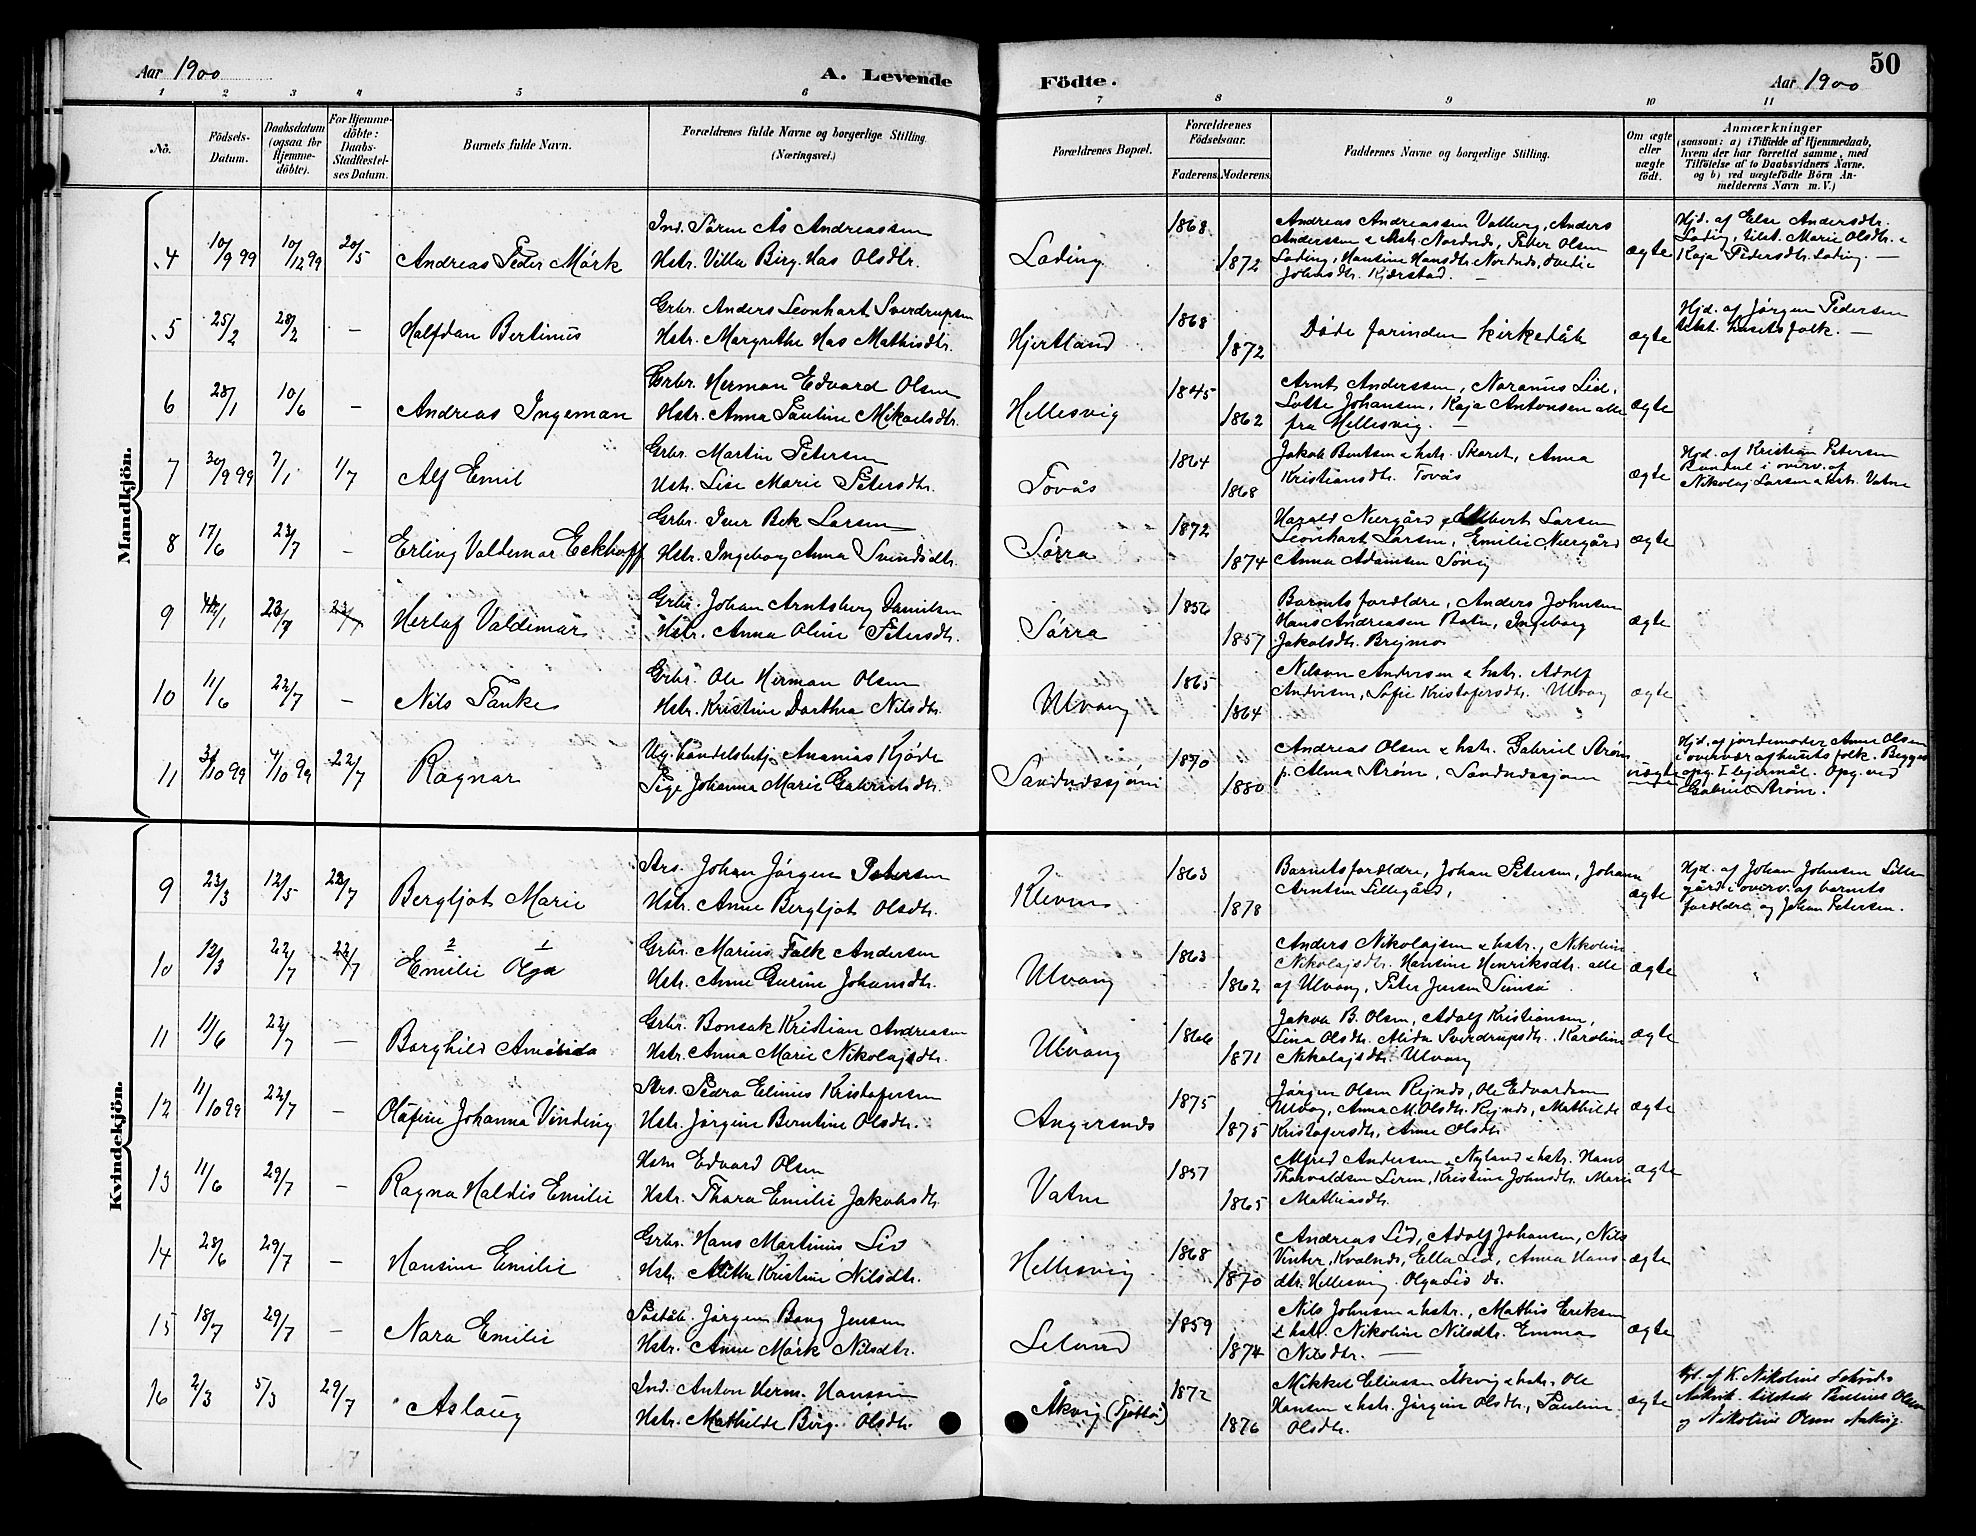 Aar 1900
A. Levende Födte.
50
Aar 1900
1 2 3 4 5 6 7 8 9 10 11
No.
Födsels-Datum.
Daabsdatum (ogsaa for Hjemmedöbte).
For Hjemmedöbte: Daabs-Stadfæstelses Datum.
Barnets fulde Navn.
Forældrenes fulde Navne og borgerlige Stilling. (Næringsvei.)
Forældrenes Bopæl.
Forældrenes Födselsaar.
Faderens. Moderens.
Faddernes Navne og borgerlige Stilling.
Om ægte eller uægte födt.
Anmærkninger
(saasom: a) i Tilfælde af Hjemmedaab, hvem der har forrettet samme, med Tilföielse af to Daabsvidners Navne, og b) ved uægtefödte Börn Anmelderens Navn m. V.)
Mandkjön.
4 10/9 99 10/12 99 20/5 Andreas Peder Mörk
Ind. Sören Ås Andreassen
Hstr. Villa Birg. Has Olsdtr.
Lading 1868 1872
Andreas Andreassen Valberg, Anders
Anderssen & hstr. Nordnds, Peter Olsen
Lading, Hansine Hansdtr. Nordnds,
Johnsdtr. Kjærstad. —
ægte
Hjd. af Else Andersdtr.
Lading, tilst. Marie Olsdtr. &
Kaja Pedersdtr. Lading. —
5 25/2 28/2 — Halfdan Bertinus
Grbr. Anders Leonhart Sverdrupsen
Hstr. Margrethe Has Mathisdtr.
Hjertland 1868 1872
Döde forinden kirkedåb
ægte
Hjd. af Jörgen Pedersen
tilst. husets folk. —
6 28/1 10/6 — Andreas Ingeman
Grbr. Herman Edvard Olsen
Hstr. Anna Pauline Mikaelsdtr.
Hellesvig 1845 1862
Arnt Anderssen, Naranus Lid.
Lotte Johansen, Kaja Antonsen alle
fra Hellesvig. —
ægte
7 30/9 99 7/1 1/7 Alf Emil
Grbr. Martin Petersen
Hstr. Lise Marie Petersdtr.
Tovås 1864 1868
Jakob Bentsen & hstr. Skaret, Anna
Kristiansdtr. Tovås
ægte
Hjd. af Kristian Petersen
i overv. af
Nikolaj Larsen & hstr. Vatne
8 17/6 23/7 — Erling Valdemar Eckhoff
Grbr. Iver Bek Larsen
Hstr. Ingeborg Anna Svendsdtr.
Sörra 1872 1874
Harald Neergård, Albert Larsen
Leonhart Larsen, Emilie Neergård
Anna Adamsen Sövig
ægte
9 /1 23/7 23/7 Herlaf Valdemar
Grbr. Johan Arntsberg Danielsen
Hstr. Anna Oline Petersdtr.
Sörra 1856 1857
Barnets forældre, Anders Johnsen
Hans Andreasen Botn, Ingeborg
Jakobsdtr. Brejmo
ægte
10 11/6 22/7 — Nils Tanke
Grbr. Ole Herman Olsen
Hstr. Kristine Dorthea Nilsdtr.
Ulvang 1865 1864
Nilson Andersen & hstr. Adolf
Andersen, Sofie Kristofersdtr. Ulvang
ægte
11 31/10 99 4/10 99 22/7 Ragnar
Ug. handelsbetj. Ananias Kjöde
Pige Johanna Marie Gabrielsdtr.
Sandnessjöen 1870 1880
Andreas Olsen & hstr. Gabriel Ström
p. Alma Ström, Sandnessjöen
uægte
Hjd. af jordemoder Anne Olsen
i overvær af husets folk. Begges
opg. I lejermål. Opg. ved
Gabriel Ström.
Kvindekjön.
9 23/3 12/5 22/7 Bergljot Marie
Strs. Johan Jörgen Petersen
Hstr. Anne Bergljot Olsdtr.
Kleven 1863 1878
Barnets forældre, Johan Petersen, Johan
Arntsen Lillegård,
ægte
Hjd. af Johan Johnsen Lille
gård i overv. af barnets
forældre og Johan Petersen.
10 12/3 22/7 22/7 Emilie Olga
2 1
Grbr. Marius Falk Andersen
Hstr. Anne Gurine Johansdtr.
Ulvang 1863 1862
Anders Nikolajsen & hstr., Nikoline
Nikolajsdtr. Hansine Henriksdtr. alle
af Ulvang, Peter Jensen Simsö
ægte
11 11/6 22/7 — Borghild Amanda
Grbr. Bonsak Kristian Andreasen
Hstr. Anna Marie Nikolajsdtr.
Ulvang 1866 1871
Jakob B. Olsen, Adolf Kristiansen,
Lina Olsdtr. Alida Sverdrupsdtr. Karoline
Nikolajsdtr. Ulvang
ægte
12 11/10 99 22/7 — Olafine Johanna Vinding
Strs. Pedra Elinus Kristofersen
Hstr. Jörgine Berntine Olsdtr.
Angersnes 1875 1875
Jörgen Olsen Rejnds, Ole Edvardsen
Ulvang, Anna M. Olsdtr. Rejnds, Mathilde
Kristofersdtr., Anne Olsdtr.
ægte
13 11/6 29/7 — Ragna Haldis Emilie
Edvard Olsen
Hstr. Thora Emilie Jakobsdtr.
Vatne 1857 1865
Alfred Andersen Nyland & hstr. Hans
Thorvaldsen Leren, Kristine Johnsdtr. Marie
Mathiasdtr.
ægte
14 28/6 29/7 — Hansine Emilie
Grbr. Hans Martinus Lid
Hstr. Alethe Kristine Nilsdtr.
Hellesvig 1868 1870
Andreas Lid, Adolf Johansen, Nils
Vinter, Kvalnds, Ella Lid, Anna Hans
dtr. Hellesvig. Olga Lid Ds.
ægte
15 18/7 29/7 — Nara Emilie
Jörgen Bang Jensen
Hstr. Anne Mörk Nilsdtr.
1859 1874
Nils Johnsen & hstr., Mathis Eriksen
& hstr. Nikoline Nilsdtr. Emma
Nilsdtr. —
ægte
16 2/3 5/3 29/7 Aslaug
Ind. Anton Herm. Hanssen
Hstr. Mathilde Birg. Olsdtr.
Åkvig (Tjøtta) 1872 1876
Mikkel Eliassen Åkvig & hstr. Ole
Hansen & hstr. Jörgine Olsdtr., Pauline
Olsdtr.
ægte
Hjd. af K. Nikoline
tilstede Pauline Olsen
og Nikoline Olsen Åkvig.